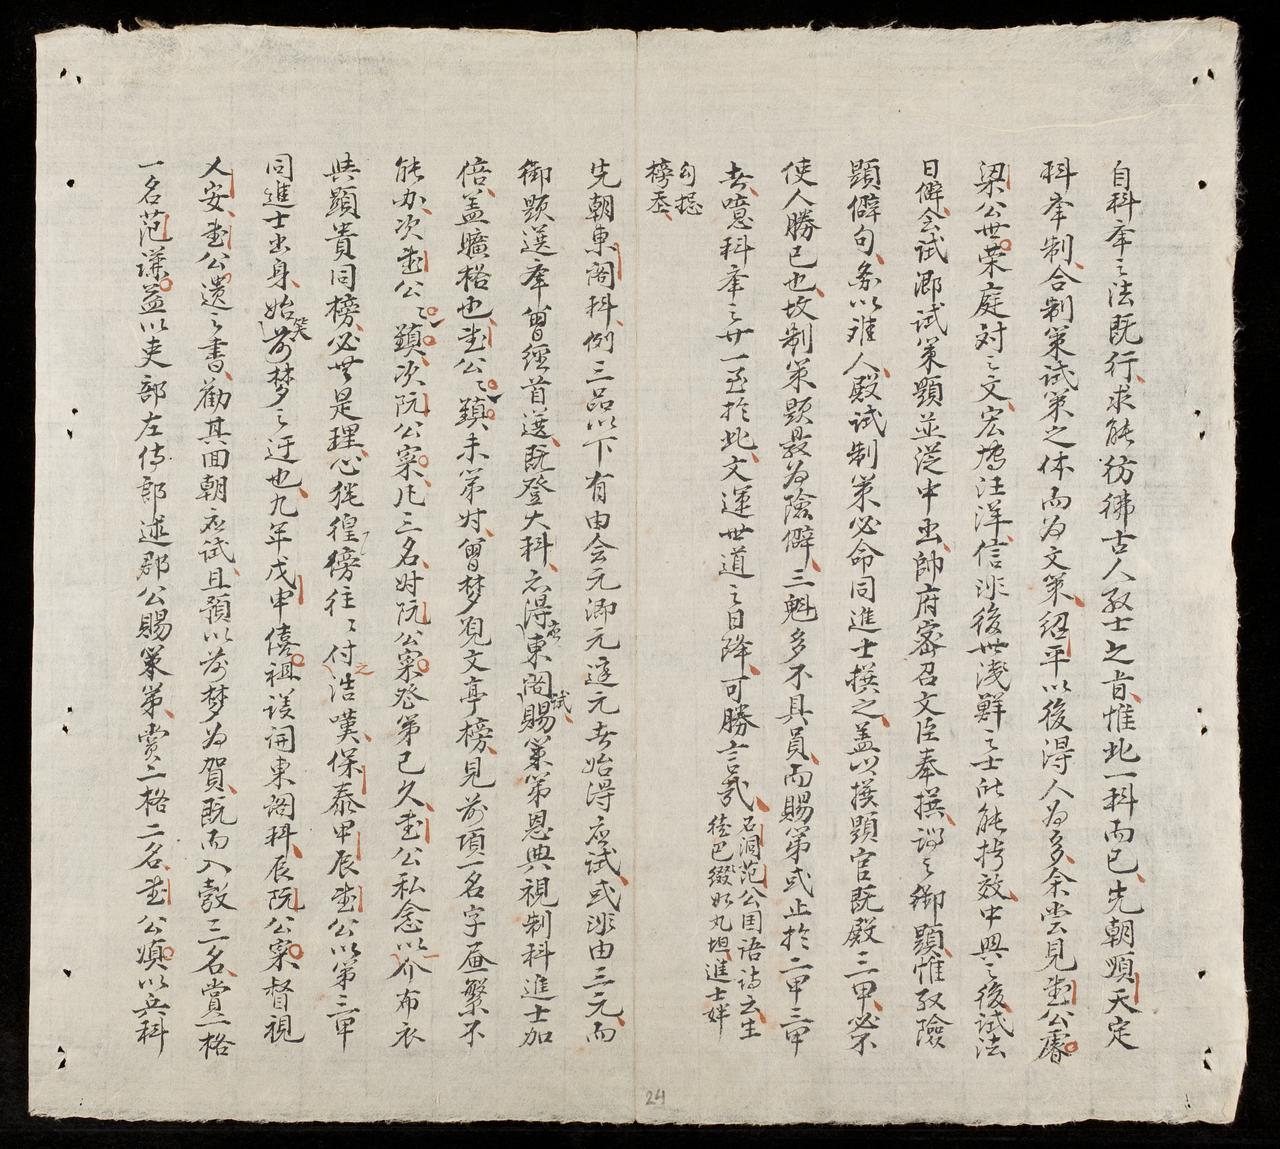 自科举之法既行求能彷彿古人教士之旨惟此一科而已先朝順天定
科举制合制策試策之体而为文策紹平以後得人为多余尝見武公睿
梁公世荣庭对之文宏博汪洋信非後世浅鮮之士所能拷效中興之後試法
日僻会試鄉試策題並従中出帥府密召文臣奉撰謂之御題惟取險
題僻句务以难人殿試制策必命同進士撰之盖以撰題官既殿三甲必不
使人勝已也故制策題最为險僻三魁多不具員而賜第或止於二甲三甲
者噫科举之廿一至於此文運世道之日降可勝言哉石洞范公国语詩云生
徒巴缀如丸坦進士姅
榜丞
先朝東阁科例三品以下有由会元鄉元庭元者始得应試或非由三元而
御题选举曾經首选既登大科亦得应東阁試賜第恩典視制科進士加
倍盖曠格也武公公鎮未第时曾梦观文亭榜見前項一名字画繁不
能办次武公公鎮次阮公寀凡三名时阮公寀登第已久武公私念以介布衣
與顕貴同榜必無是理心徘徨榜往往付之浩嘆保泰甲辰武公以第三甲
同進士出身始笑前梦之迂也九年戊申僖祖議開東阁科辰阮公寀督視
乂安武公遺之書勸其回朝应試且預以前梦为賀既而入彀三名賞一格
一名范谦益以吏部左侍郎述郡公賜第賞二格二名武公以兵科